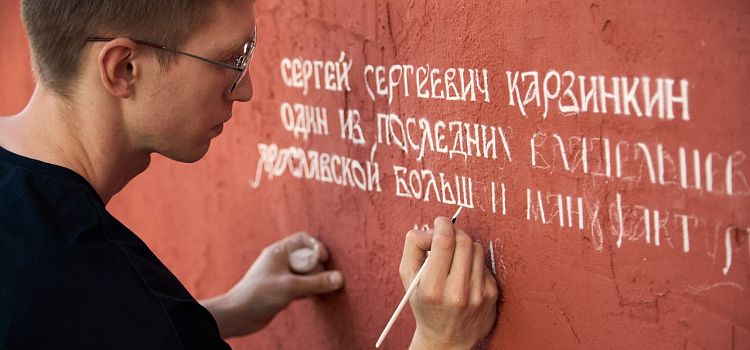 СЕРГЕЙ СЕРГЕЕВИЧ КАРЗИНКИН
ОДИН ИЗ ПОСЛЕДНИХ ВЛАДЕЛЬЦЕВ
ЯРОСЛАВСКОЙ БОЛЬШ И МАНУФАКТУ